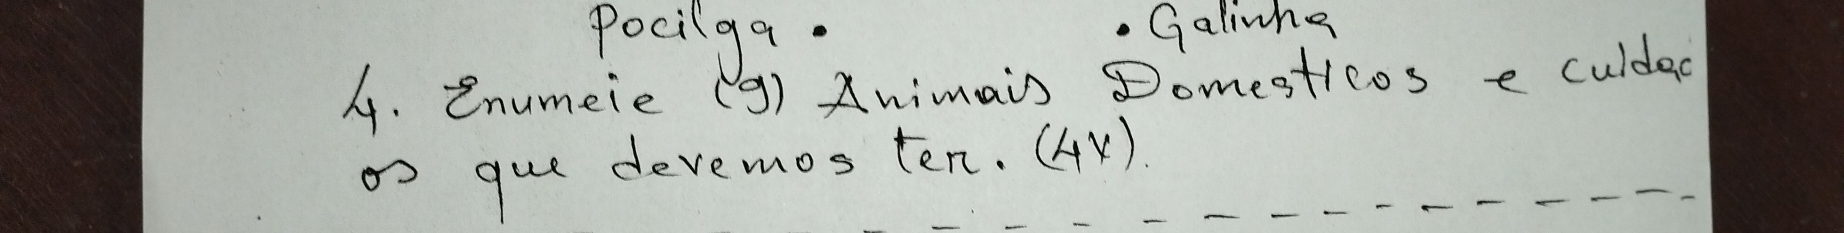 Pocilga • • Galinha
4. Enumeie (9) Animais Domesticos e cuidad
os que devemos ter. (4V).